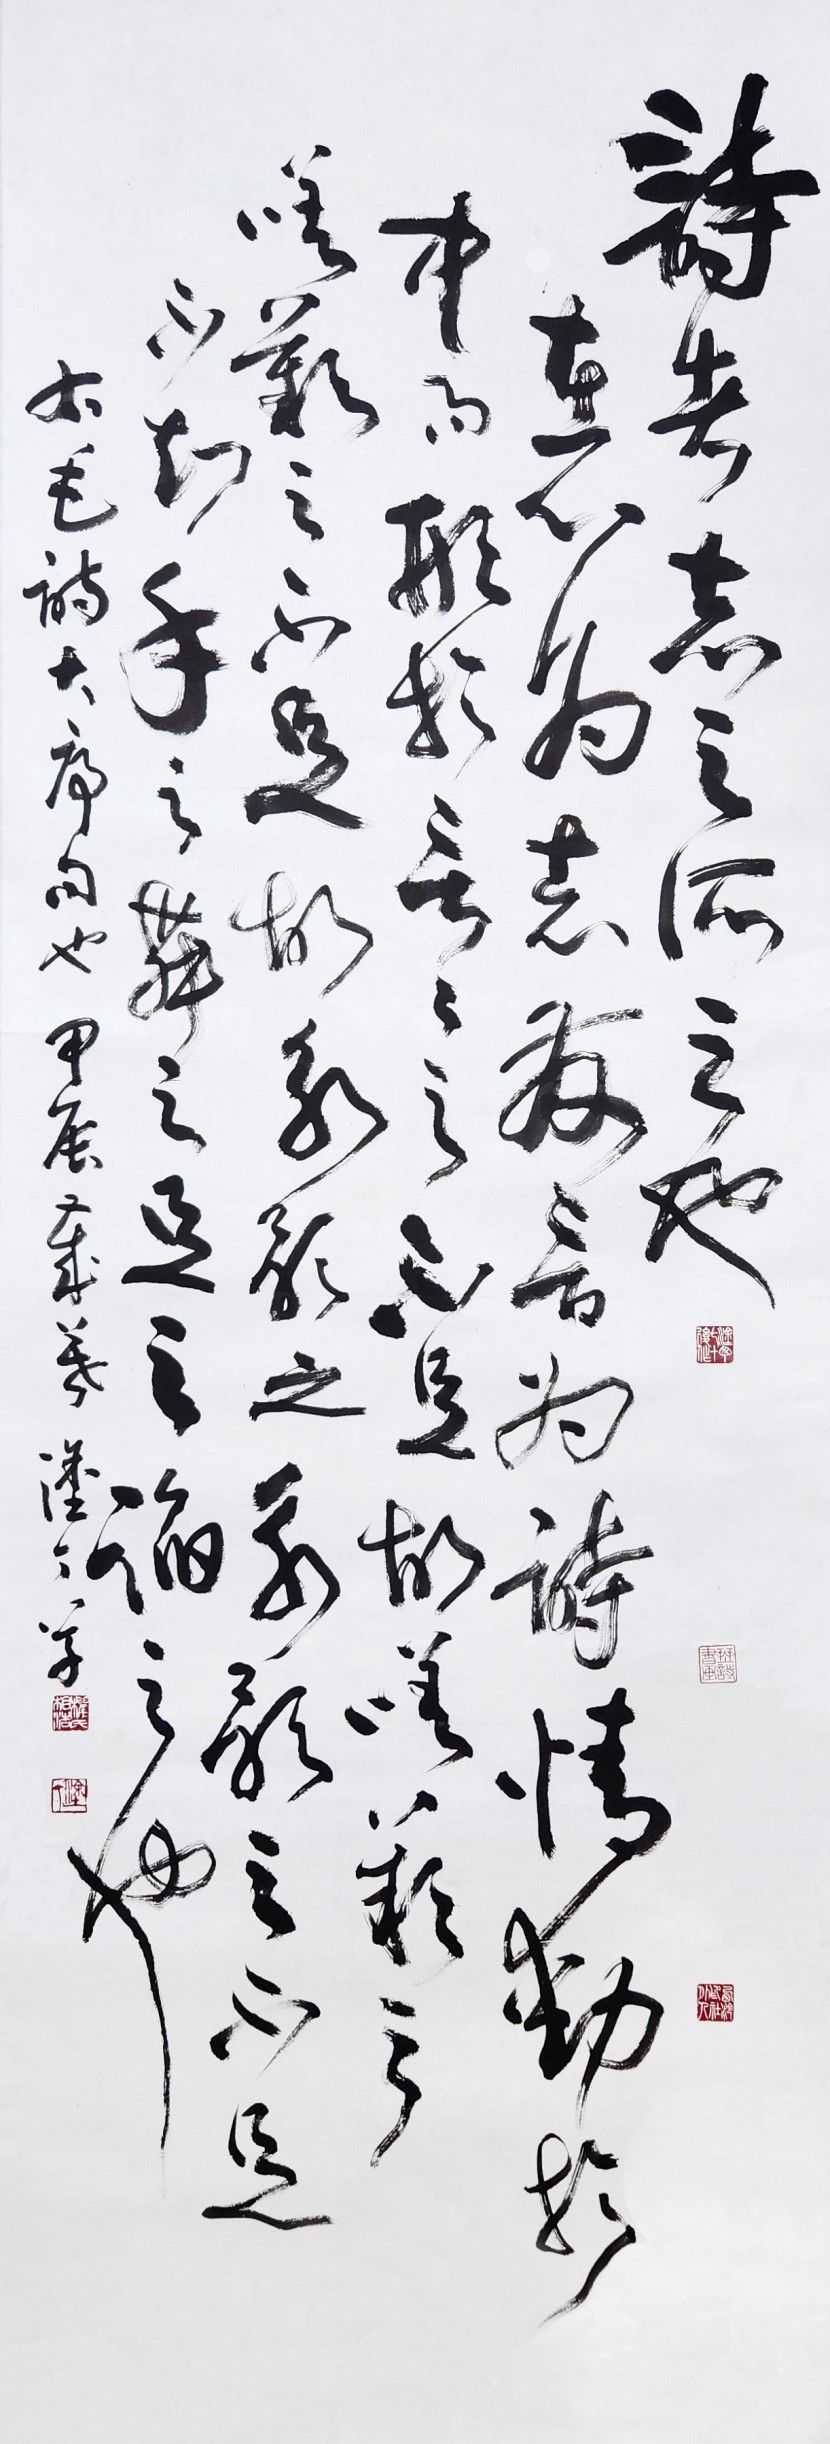 詩者志之所之也
在心為志發言為詩情動於
中而形於言々之不足故嗟歎之
嗟歎之不足故永歌之永歌之不足
不知手之舞之足之蹈之也
右毛詩大序句也甲辰歲